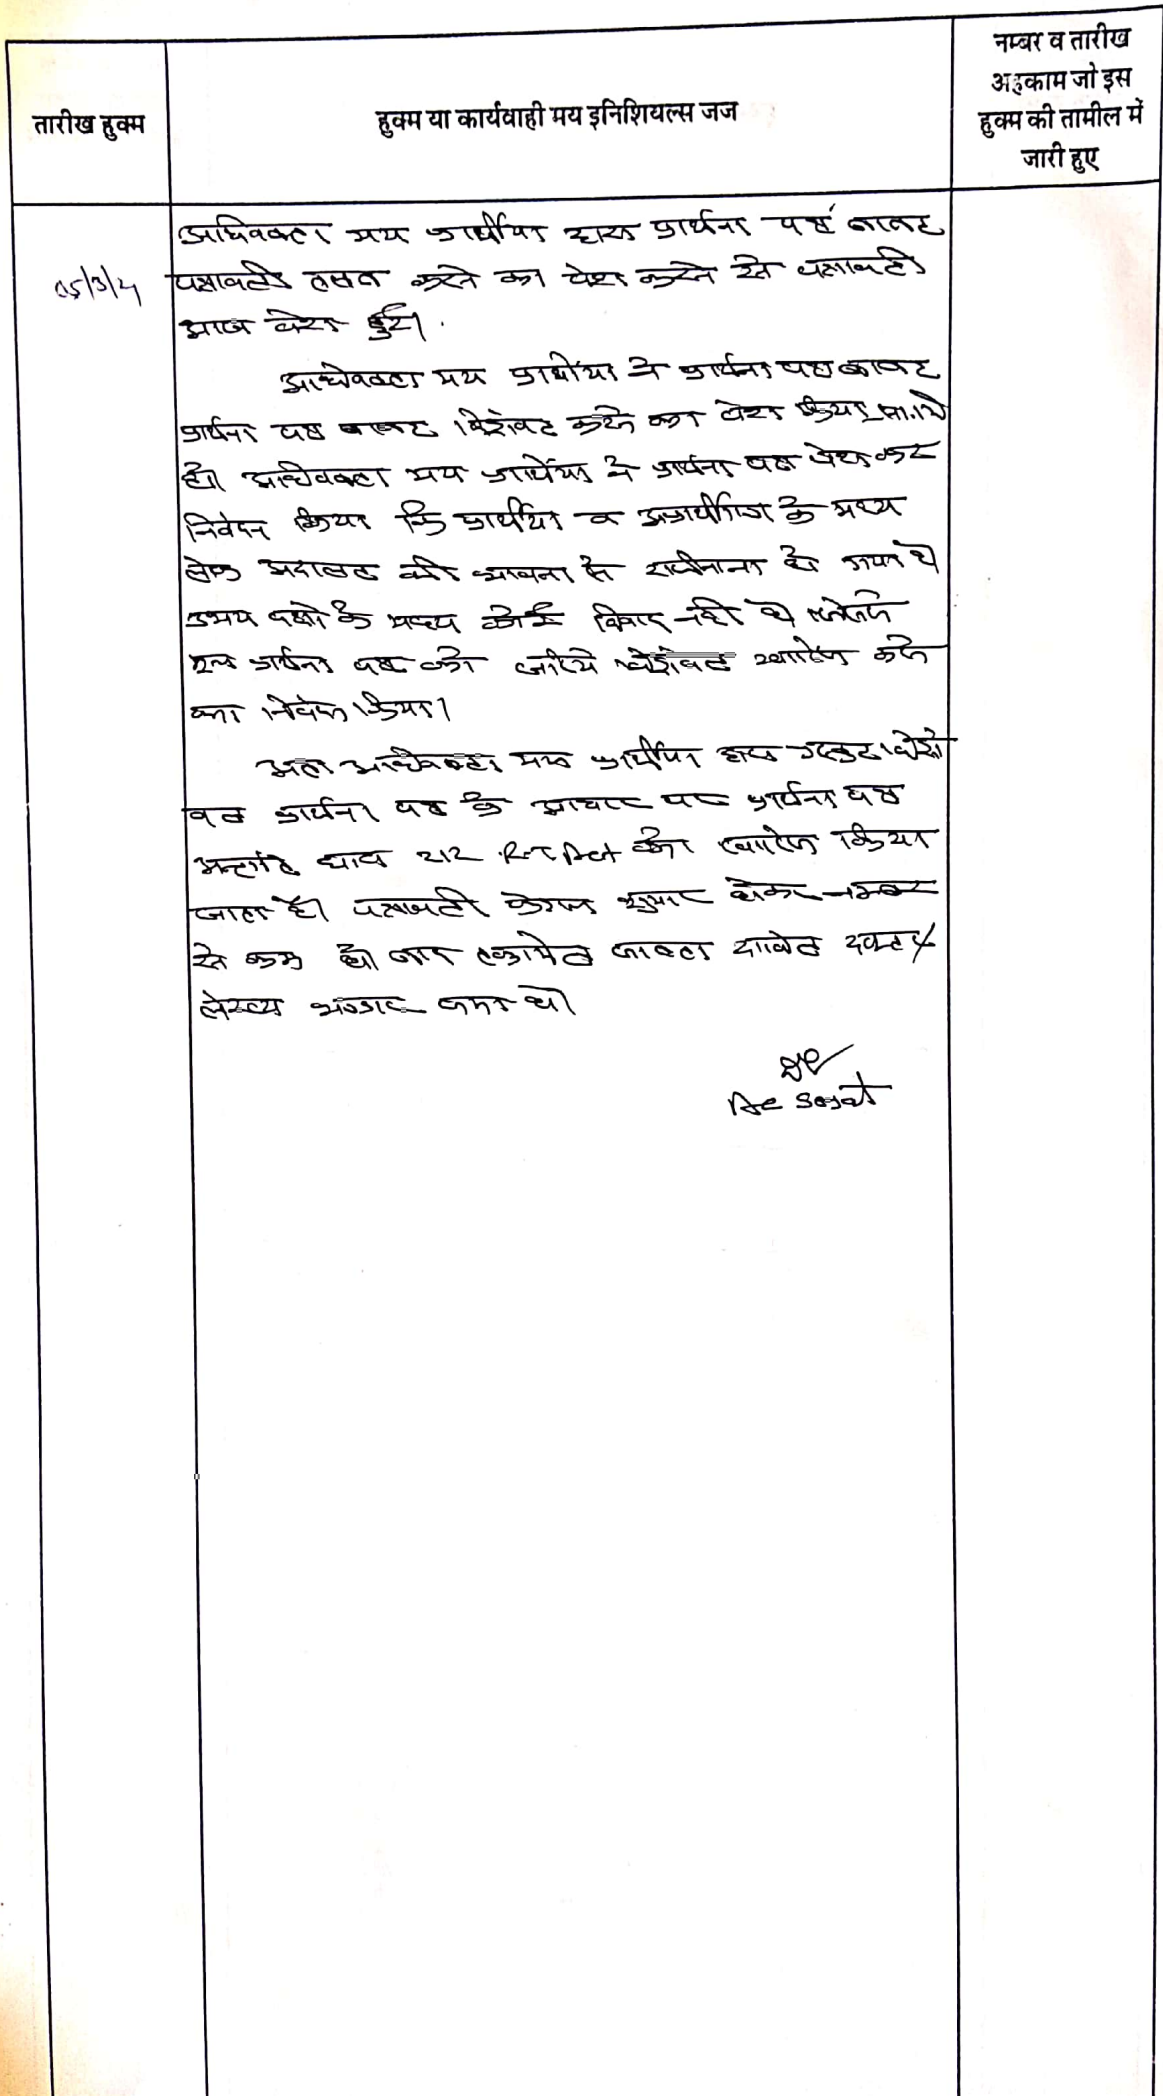 तारीख हुक्म
हुक्म या कार्यवाही मय इनिशियल्स जज
नम्बर व तारीख
अहकाम जो इस
हुक्म की तामील में
जारी हुए
अधिवक्ता मय प्रार्थीया द्वारा प्रार्थना पत्र बाबत
05/3/4 पत्रावली तलब करने का पेश करने से पत्रावली
आज पेश हुई।
अधिवक्ता मय प्रार्थीया ने प्रार्थना पत्र बाबत
प्रार्थना पत्र बाबत विड्रोवल करने का पेश किया
है। अधिवक्ता मय प्रार्थीया ने प्रार्थना पत्र पेश कर
निवेदन किया कि प्रार्थीया व अप्रार्थीगण के मध्य
लोक अदालत की भावना से राजीनामा हो गया है
उभय पक्षो के मध्य कोई विवाद नही है इसलिये
प्रार्थना पत्र को जरिये विड्रोवल खारिज करने
का निवेदन किया।
अतः अधिवक्ता मय प्रार्थीया द्वारा प्रस्तुत विड्रो
वल प्रार्थना पत्र के आधार पर प्रार्थना पत्र
अन्तर्गत धारा 212 R.T. Act को खारिज किया
जाता है। पत्रावली फैसल शुमार होकर नम्बर
से कम हो बाद तकमील जाब्ता दाखिल दफ्तर
लेख्य भण्डार जमा हो।
Sojat